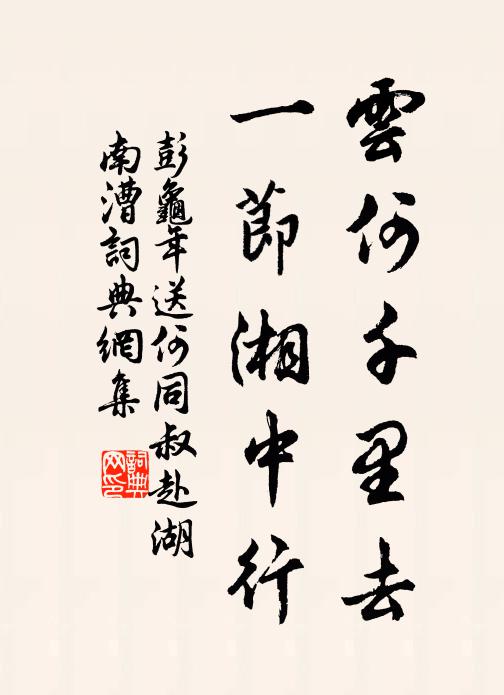 雲何千里去
一節湘中行
彭龜年送何同叔赴湖
南漕詞典網集
詞典
网印